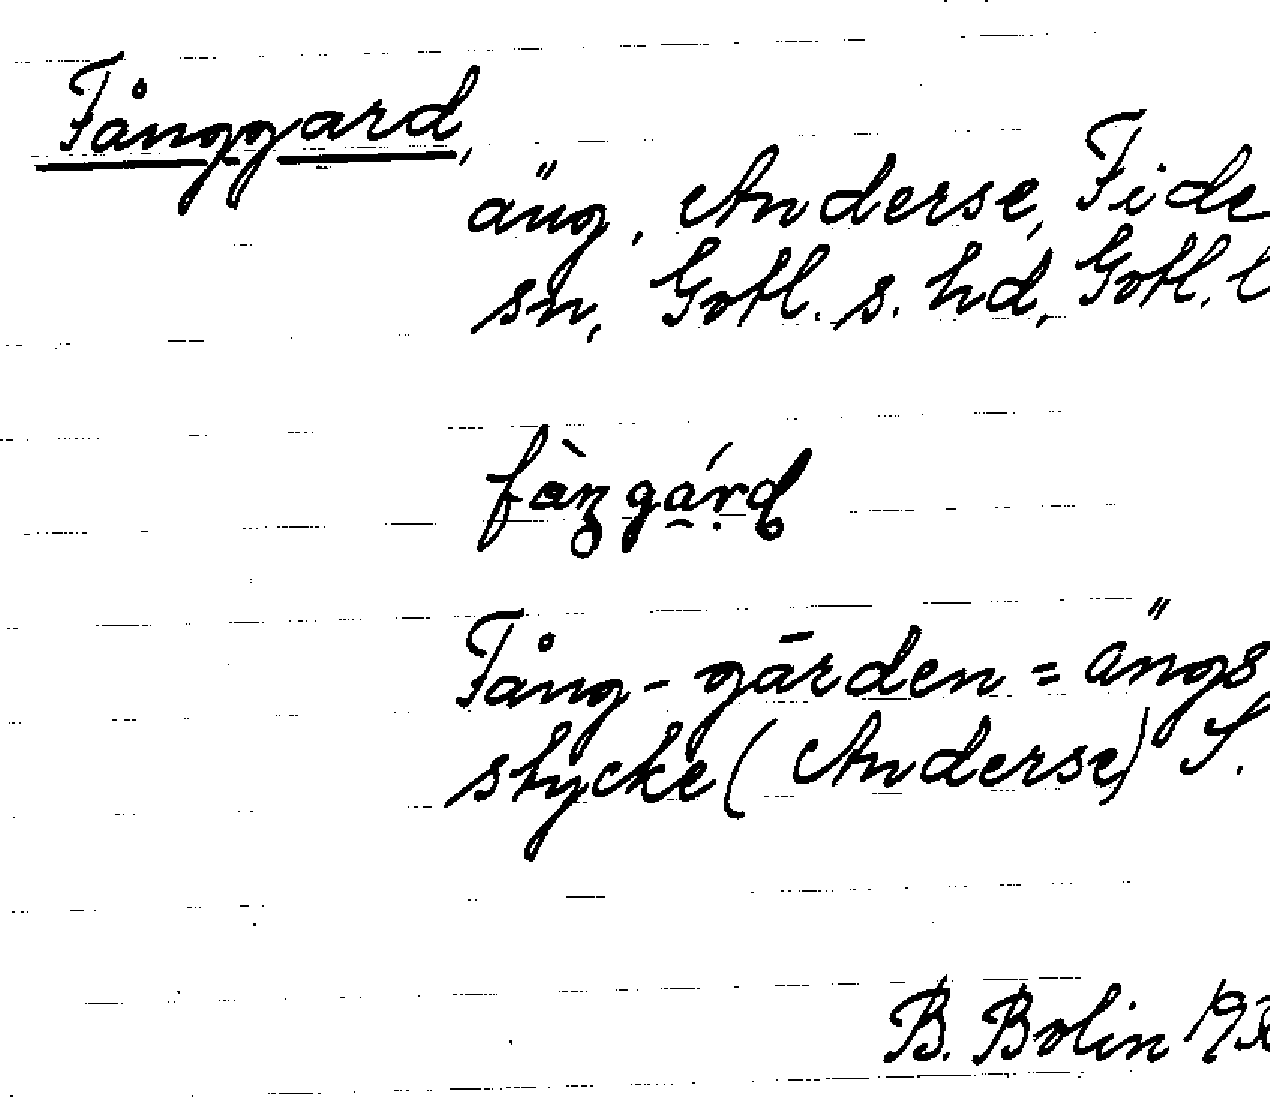 Fånggard,
äng, Anderse, Fide
sn, Gotl. s. hd, Gotl. l
Fång-gärden = ängs
stycke (Anderse) S.
B. Bolin 193